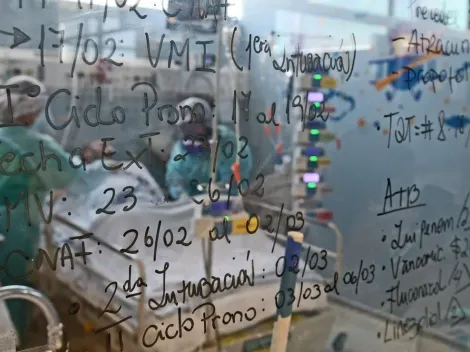 →17/02: VMI (1era Intubación)
1º Ciclo Prono: 17 al 19/02
Fecha Ext: /02
VMI: 23 26/02
CNAF: 26/02 al 02/03
• 2da Intubación: 02/03
II Ciclo Prono: 03/03 al 06/03
Prevalec
- Atracuri
- Propofol
• TQT: #8
ATB
• Imipenem
• Vancomic
• Fluconazol
• Linezolid